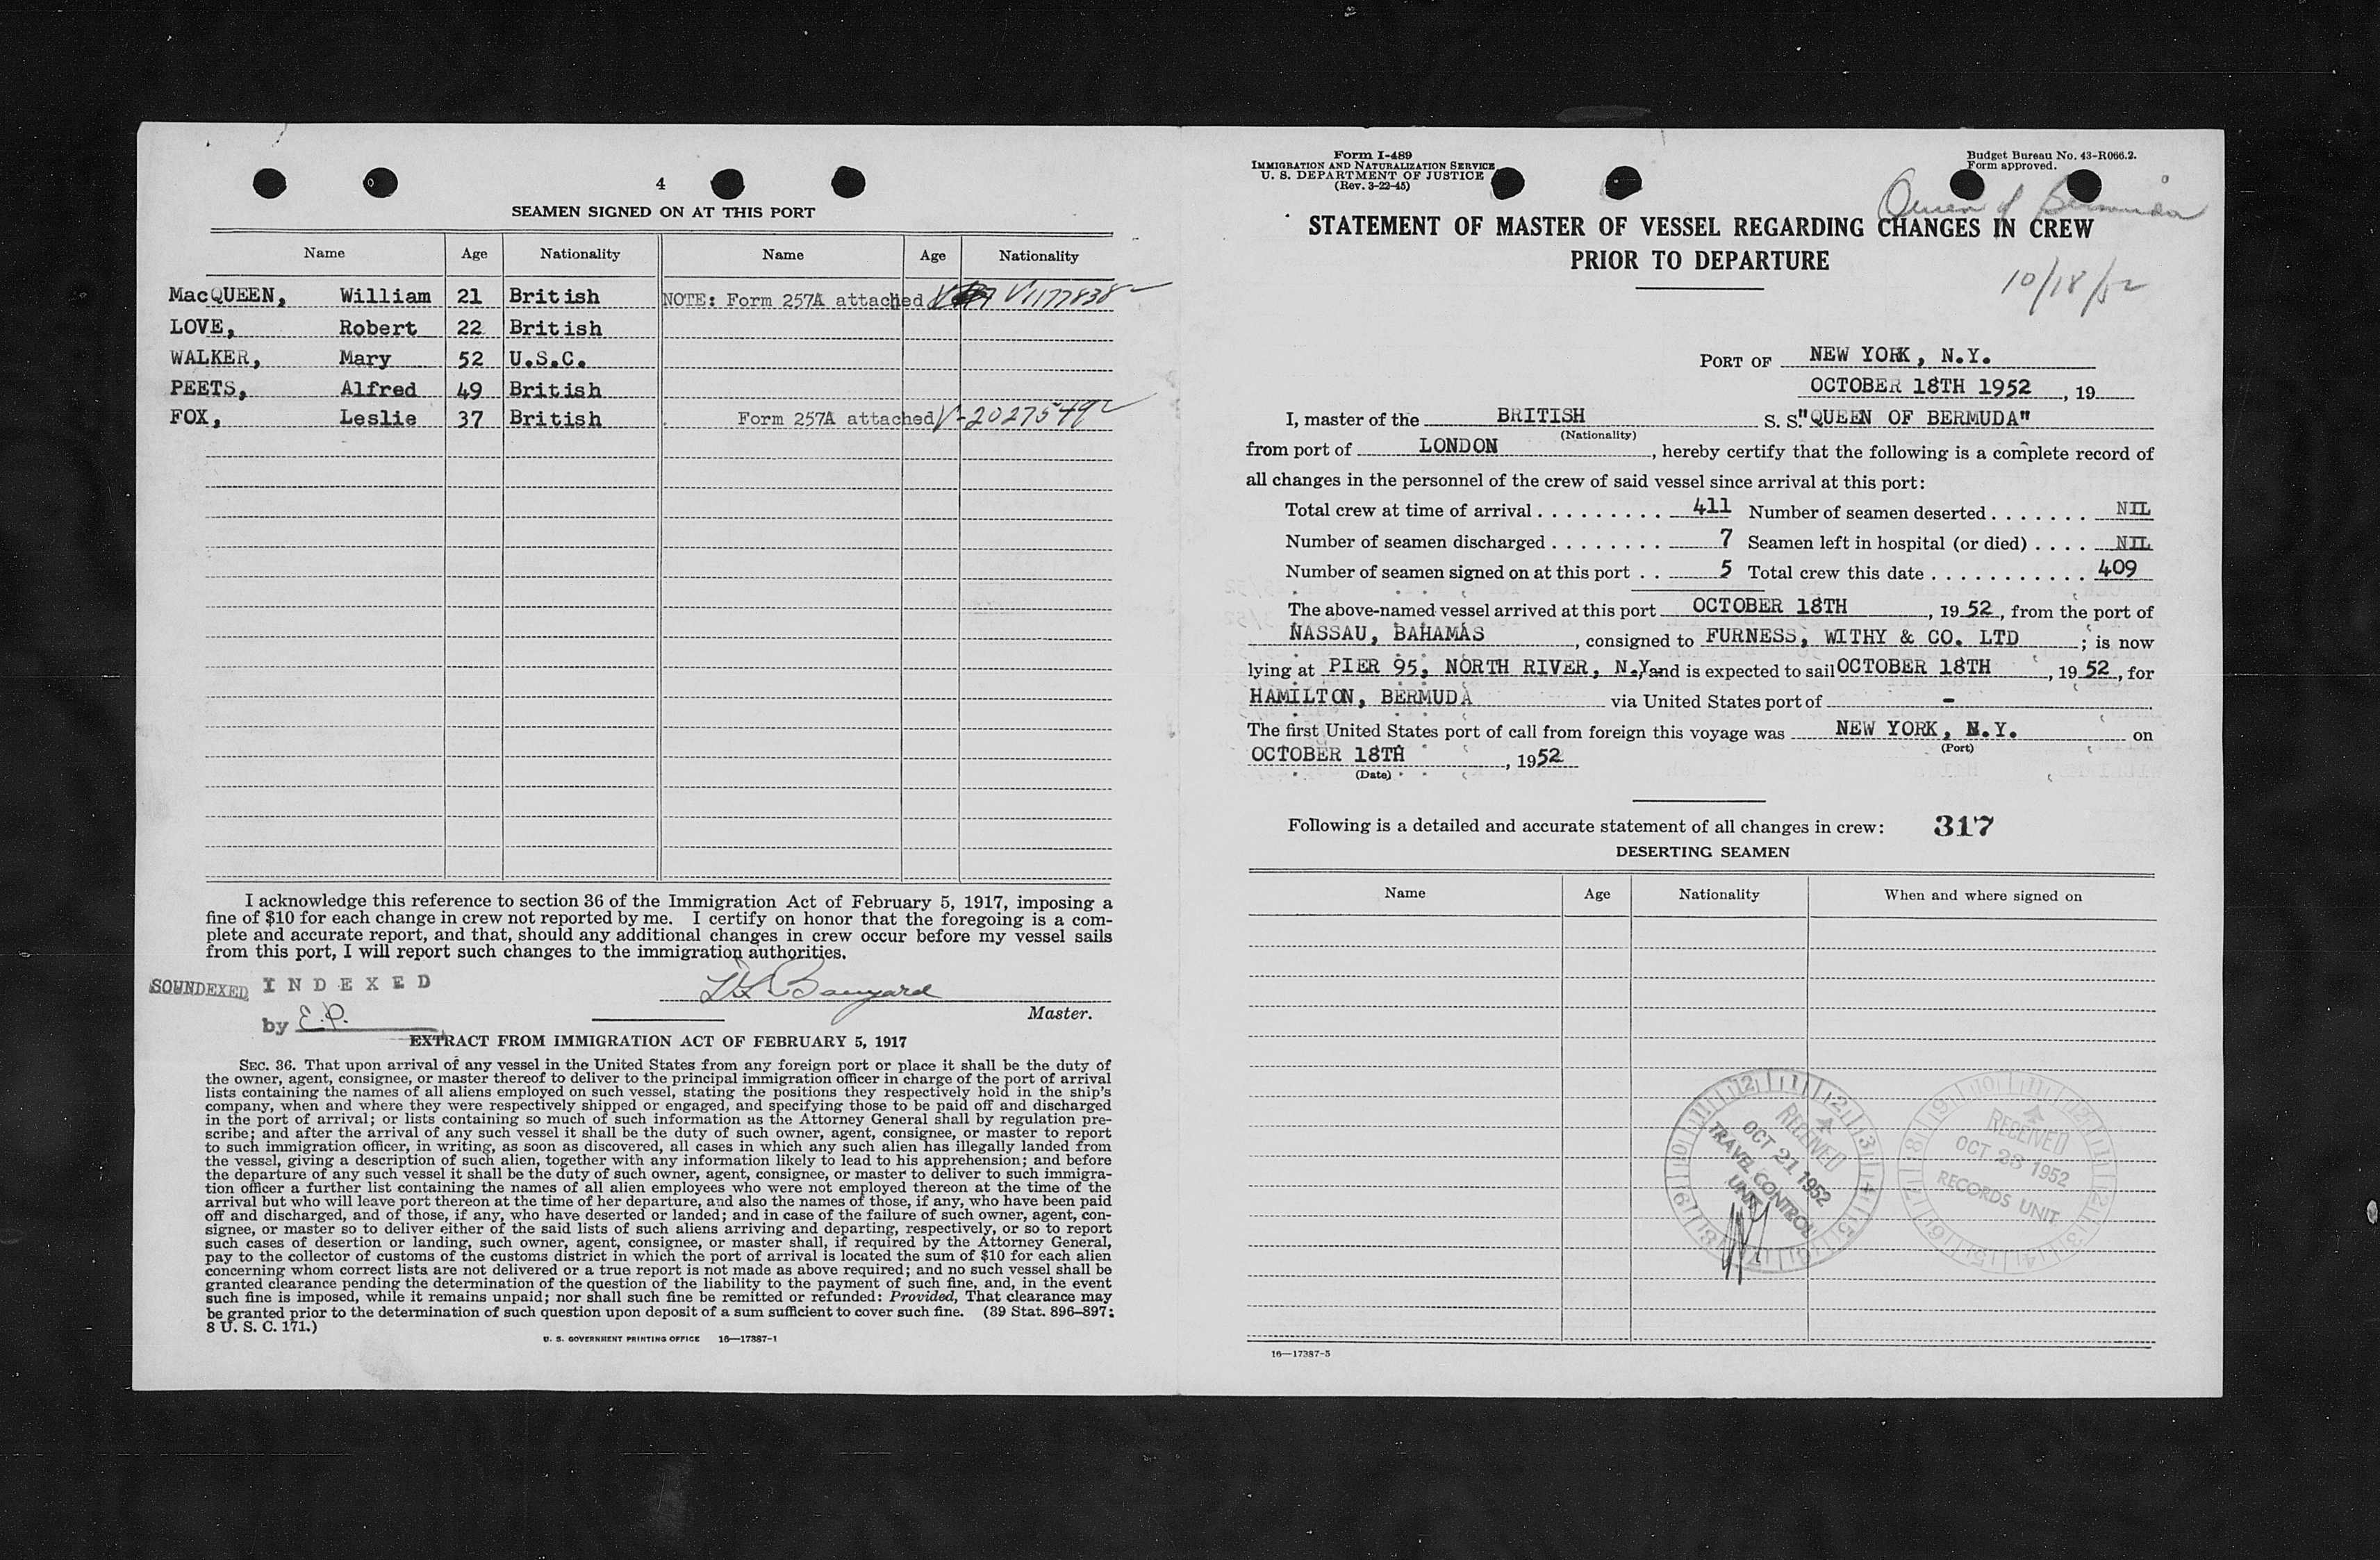 4
SEAMEN SIGNED ON AT THIS PORT
Name Age Nationality Name Age Nationality
MacQUEEN, William 21 British NOTE: Form 257A attached V1177838
LOVE, Robert 22 British
WALKER, Mary 52 U.S.C.
PEETS, Alfred 49 British
FOX, Leslie 37 British Form 257A attached V-2027549
I acknowledge this reference to section 36 of the Immigration Act of February 5, 1917, imposing a
fine of $10 for each change in crew not reported by me. I certify on honor that the foregoing is a com-
plete and accurate report, and that, should any additional changes in crew occur before my vessel sails
from this port, I will report such changes to the immigration authorities.
SOUNDEXED INDEXED
by E.P.
Master.
EXTRACT FROM IMMIGRATION ACT OF FEBRUARY 5, 1917
SEC. 36. That upon arrival of any vessel in the United States from any foreign port or place it shall be the duty of
the owner, agent, consignee, or master thereof to deliver to the principal immigration officer in charge of the port of arrival
lists containing the names of all aliens employed on such vessel, stating the positions they respectively hold in the ship's
company, when and where they were respectively shipped or engaged, and specifying those to be paid off and discharged
in the port of arrival; or lists containing so much of such information as the Attorney General shall by regulation pre-
scribe; and after the arrival of any such vessel it shall be the duty of such owner, agent, consignee, or master to report
to such immigration officer, in writing, as soon as discovered, all cases in which any such alien has illegally landed from
the vessel, giving a description of such alien, together with any information likely to lead to his apprehension; and before
the departure of any such vessel it shall be the duty of such owner, agent, consignee, or master to deliver to such immigra-
tion officer a further list containing the names of all alien employees who were not employed thereon at the time of the
arrival but who will leave port thereon at the time of her departure, and also the names of those, if any, who have been paid
off and discharged, and of those, if any, who have deserted or landed; and in case of the failure of such owner, agent, con-
signee, or master so to deliver either of the said lists of such aliens arriving and departing, respectively, or so to report
such cases of desertion or landing, such owner, agent, consignee, or master shall, if required by the Attorney General,
pay to the collector of customs of the customs district in which the port of arrival is located the sum of $10 for each alien
concerning whom correct lists are not delivered or a true report is not made as above required; and no such vessel shall be
granted clearance pending the determination of the question of the liability to the payment of such fine, and, in the event
such fine is imposed, while it remains unpaid; nor shall such fine be remitted or refunded: Provided, That clearance may
be granted prior to the determination of such question upon deposit of a sum sufficient to cover such fine. (39 Stat. 896–897;
8 U. S. C. 171.)
U. S. GOVERNMENT PRINTING OFFICE 16—17387-1
Form I-489
IMMIGRATION AND NATURALIZATION SERVICE
U. S. DEPARTMENT OF JUSTICE
(Rev. 3-22-45)
Budget Bureau No. 43-R066.2.
Form approved.
Queen of Bermuda
STATEMENT OF MASTER OF VESSEL REGARDING CHANGES IN CREW
PRIOR TO DEPARTURE
10/18/52
PORT OF NEW YORK, N.Y.
OCTOBER 18TH 1952, 19
I, master of the BRITISH S. S. "QUEEN OF BERMUDA"
(Nationality)
from port of LONDON, hereby certify that the following is a complete record of
all changes in the personnel of the crew of said vessel since arrival at this port:
Total crew at time of arrival . . . . . . . . . 411 Number of seamen deserted . . . . . . . NIL
Number of seamen discharged . . . . . . . . 7 Seamen left in hospital (or died) . . . . NIL
Number of seamen signed on at this port . . 5 Total crew this date . . . . . . . . . . . 409
The above-named vessel arrived at this port OCTOBER 18TH, 1952, from the port of
NASSAU, BAHAMAS, consigned to FURNESS, WITHY & CO. LTD; is now
lying at PIER 95, NORTH RIVER, N.Y. and is expected to sail OCTOBER 18TH, 1952, for
HAMILTON, BERMUDA via United States port of -
The first United States port of call from foreign this voyage was NEW YORK, N.Y. on
(Port)
OCTOBER 18TH, 1952
(Date)
Following is a detailed and accurate statement of all changes in crew: 317
DESERTING SEAMEN
Name Age Nationality When and where signed on
RECEIVED
OCT 21 1952
TRAVEL CONTROL
UNIT
RECEIVED
OCT 23 1952
RECORDS UNIT
16—17387-5